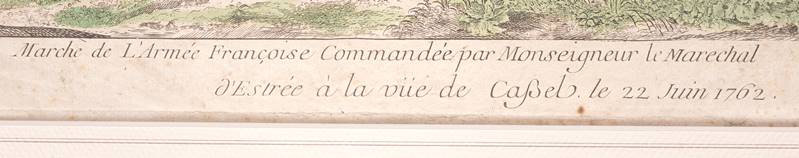 Marche de L'Armée Françoise Commandée par Monseigneur le Marechal
d'Estrée à la vüe de Caßel. le 22 Juin 1762.